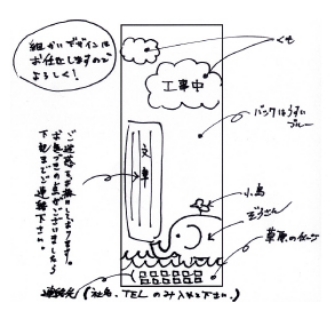 細かいデザインは
お任せしますので
よろしく!
くも
工事中
バックはうすい
ブルー
文章
小鳥
ぞうさん
草原のイメージ
ご迷惑をお掛けしております。
お気づきの点がございましたら
下記までご連絡下さい。
連絡先(社名、TELのみ入れて下さい。)